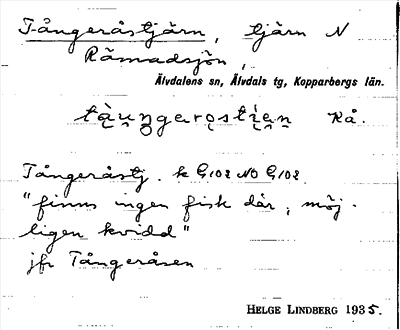 Tångeråstjärn, tjärn N
Råmadsjön,
Älvdalens sn, Älvdals tg, Kopparbergs län.
Rå.
Tångeråstj. k G.102 NO G.102
"finns ingen fisk där, möj-
ligen kvidd"
jfr Tångeråsen
HELGE LINDBERG 1935.